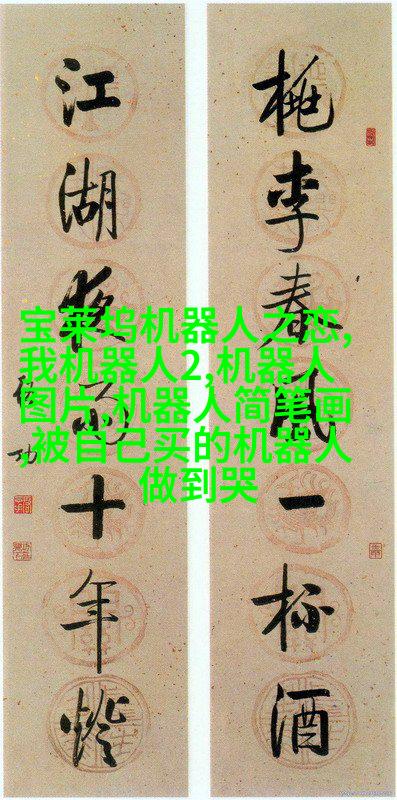 桃李春風一杯酒
江湖夜雨十年燈
启功
宝莱坞机器人之恋,
我机器人2,机器人
图片,机器人简笔画
,被自己买的机器人
做到哭